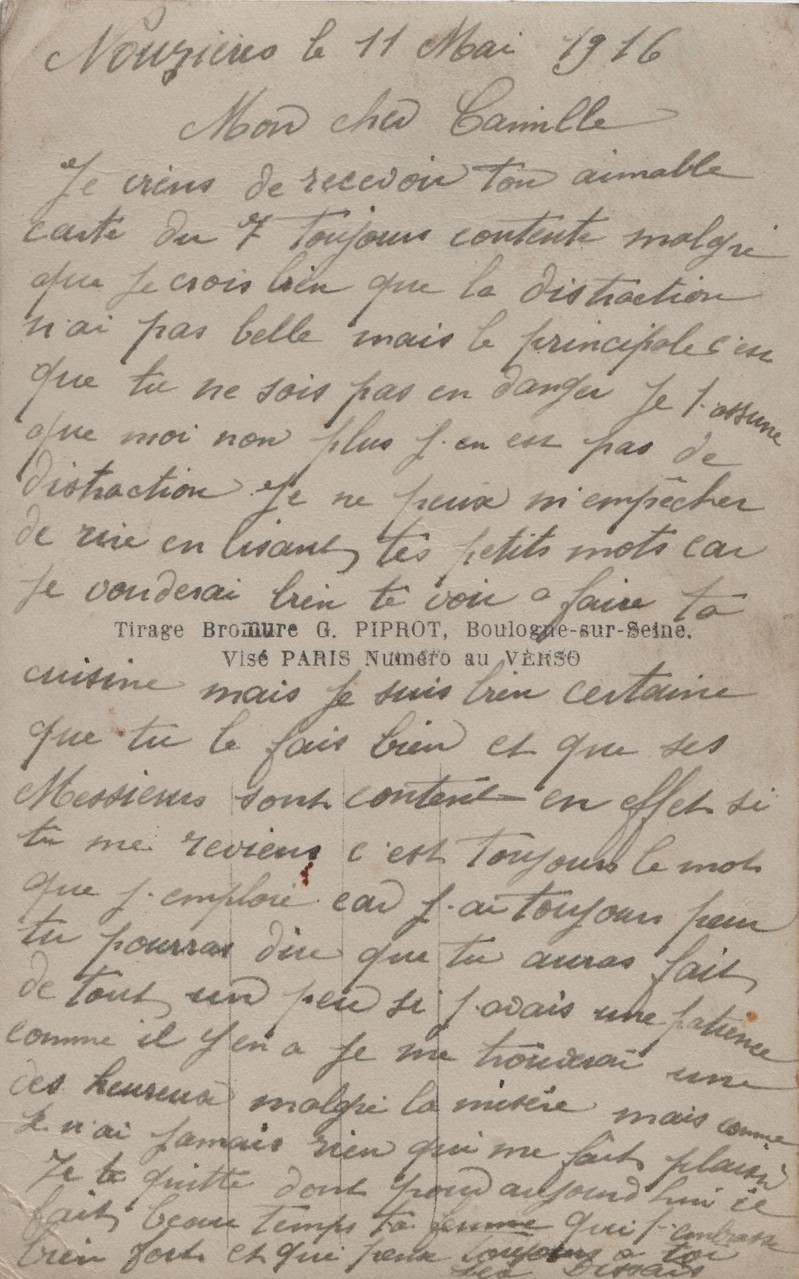 Nouziers le 11 Mai 1916
Mon cher Camille
Je viens de recevoir ton aimable
carte du 7 toujours contente malgré
que je crois bien que la distraction
n'ai pas belle mais le principale c'est
que tu ne sois pas en danger je t'assure
que moi non plus j'en est pas de
distraction Je ne peux m'empêcher
de rire en lisant tes petits mots car
je vouderai bien te voir a faire ta
Tirage Bromure G. PIPROT, Boulogne-sur-Seine.
Visé PARIS Numéro au VERSO
cuisine mais je suis bien certaine
que tu le fais bien et que ses
Messieurs sont content en effet si
tu me reviens c'est toujours le mot
que j'emploie car j'ai toujours peur
tu pourras dire que tu auras fait
de tout un peu si j'avais une patience
comme il y en a je me trouverai une
des heureux malgré la misère mais comme
je n'ai jamais rien qui me fait plaisir
Je te quitte dont pour aujourd'hui il
fait beau temps ta femme qui t'embrasse
bien fort et qui pense toujours a toi